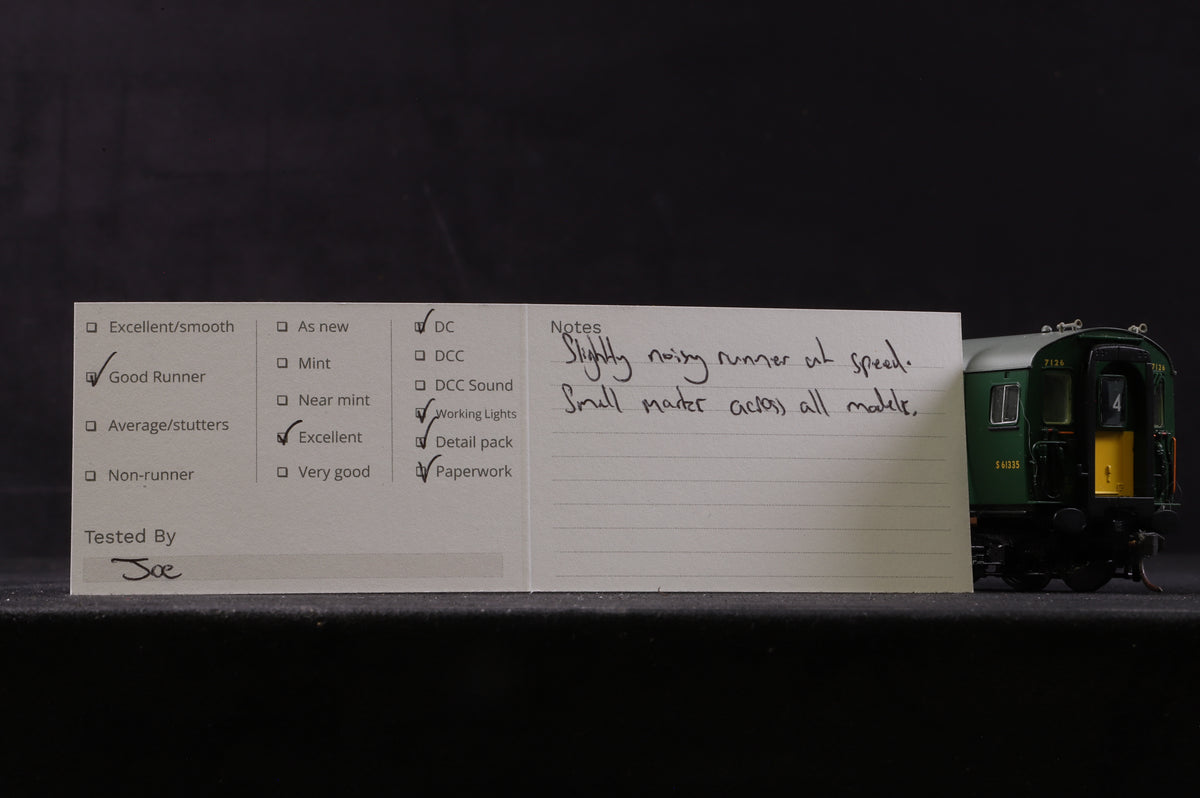 Excellent/smooth
Good Runner
Average/stutters
Non-runner
As new
Mint
Near mint
Excellent
Very good
DC
DCC
DCC Sound
Working Lights
Detail pack
Paperwork
Tested By
Joe
Notes
Slightly noisy runner at speed.
Small marks across all models.
7126
7126
S 61335
4